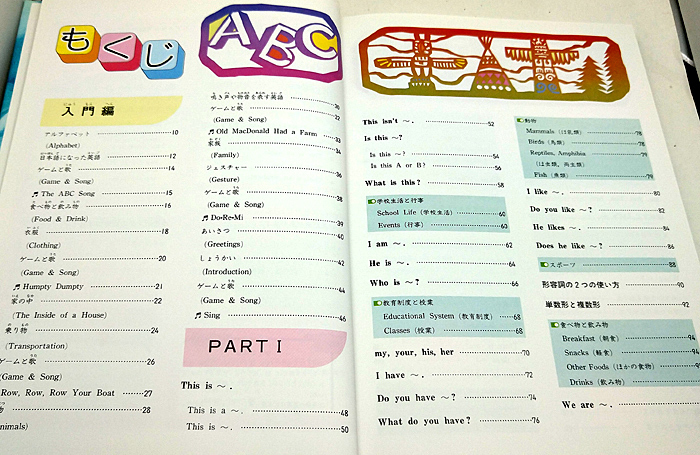 もくじ
入門編
アルファベット 10
(Alphabet)
日本語になった英語 12
ゲームと歌 14
(Game & Song)
♬ The ABC Song 15
食べ物と飲み物 16
(Food & Drink)
衣服 18
(Clothing)
ゲームと歌 20
(Game & Song)
♬ Humpty Dumpty 21
家の中 22
(The Inside of a House)
乗り物 24
(Transportation)
ゲームと歌 26
(Game & Song)
Row, Row, Row Your Boat 27
物 28
nimals)
ABC
鳴き声や物音を表す英語 30
ゲームと歌 32
(Game & Song)
♬ Old MacDonald Had a Farm 33
家族 34
(Family)
ジェスチャー 36
(Gesture)
ゲームと歌 38
(Game & Song)
♬ Do-Re-Mi 39
あいさつ 40
(Greetings)
しょうかい 42
(Introduction)
ゲームと歌 44
(Game & Song)
♬ Sing 46
PART I
This is ～.
This is a ～. 48
This is ～. 50
This isn't ～. 52
Is this ～?
Is this ～? 54
Is this A or B? 56
What is this? 58
学校生活と行事
School Life (学校生活) 60
Events (行事) 60
I am ～. 62
He is ～. 64
Who is ～? 66
教育制度と授業
Educational System (教育制度) 68
Classes (授業) 68
my, your, his, her 70
I have ～. 72
Do you have ～? 74
What do you have? 76
動物
Mammals (ほ乳類) 78
Birds (鳥類) 78
Reptiles, Amphibia 79
(は虫類, 両生類)
Fish (魚類) 79
I like ～. 80
Do you like ～? 82
He likes ～. 84
Does he like ～? 86
スポーツ 88
形容詞の2つの使い方 90
単数形と複数形 92
食べ物と飲み物
Breakfast (朝食) 94
Snacks (軽食) 94
Other Foods (ほかの食物) 95
Drinks (飲み物)
We are ～.